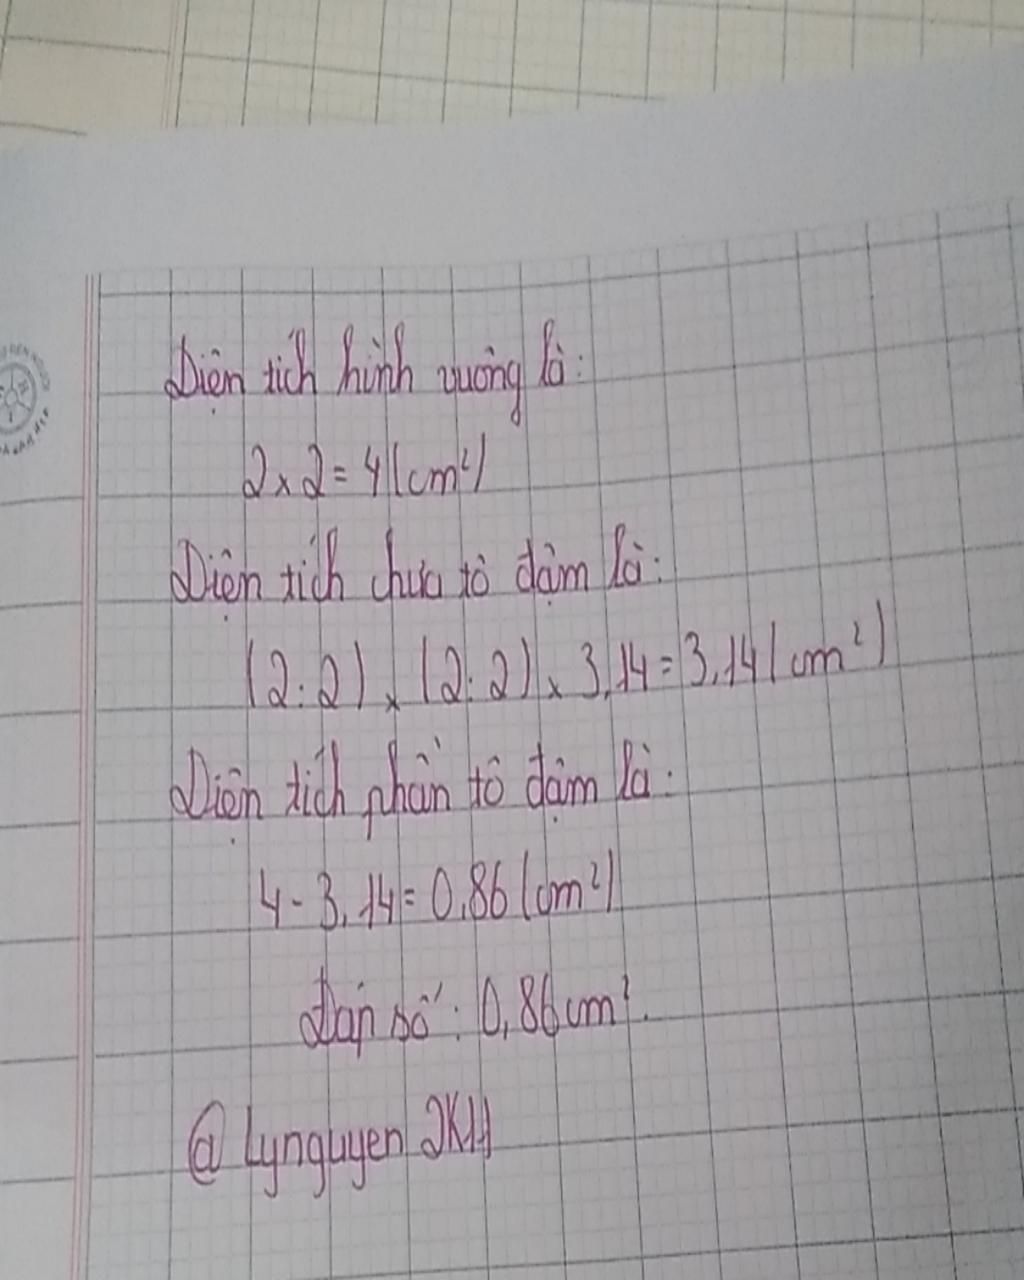 Diện tích hình vuông là:
2 x 2 = 4 (cm²)
Diện tích chưa tô đậm là:
(2 : 2) x (2 : 2) x 3,14 = 3,14 (cm²)
Diện tích phần tô đậm là:
4 - 3,14 = 0,86 (cm²)
Đáp số : 0,86 cm².
@ Lynguyen 2K11